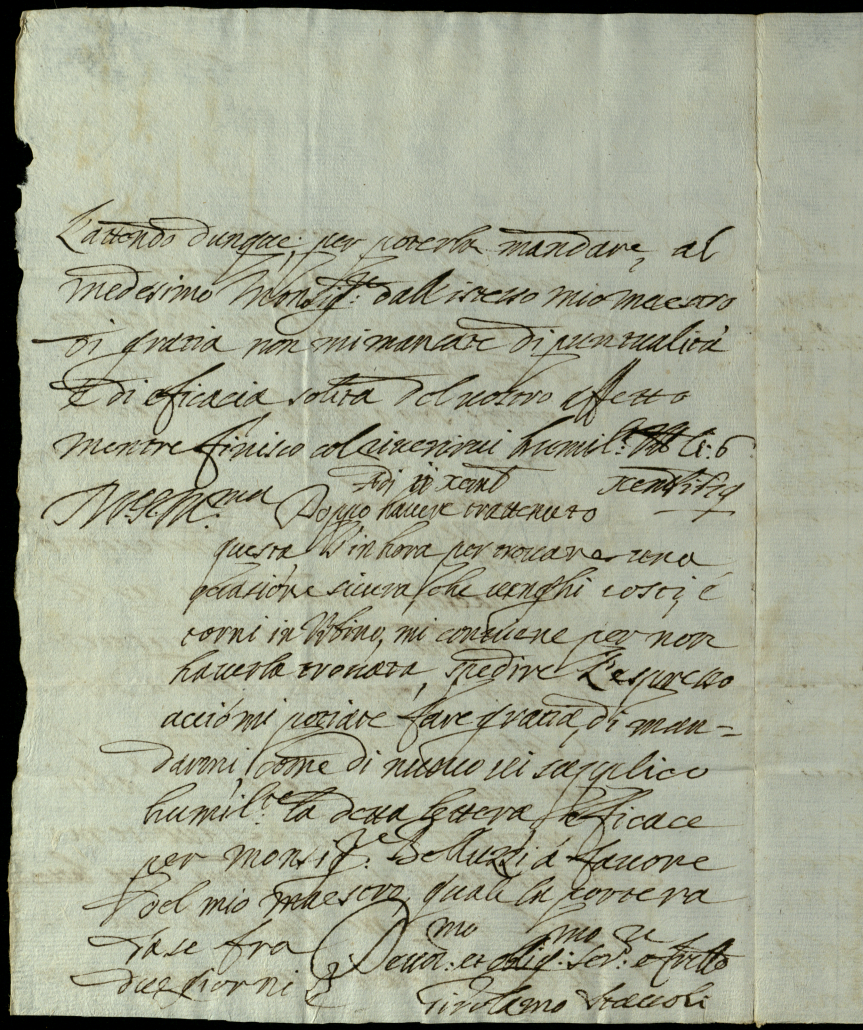 L'attendo dunque, per poterla mandare, al
medesimo Monsig.re dall'istesso mio maestro
di gratia non mi mancate di puntualità
e di eficacia solita del vostro affetto
mentre finisco col riverirvi humil.te li: 6
Adi
Doppo havere trattenuto
questa in hora per trovare una
occasione sicura che venghi costì, é
torni in Urbino, mi conviene per non
haverla trovata, spedire l'espresso
acciò mi potiate fare gratia, di man=
darmi, come di nuovo vi supplico
humil.te la detta lettera, eficace
per monsig.re Belluzzi à favore
del mio maestro, quale la portera
da se fra
due giorni
Devot.mo et oblig.mo ser.re e fr̃ello
Girolamo Staccoli